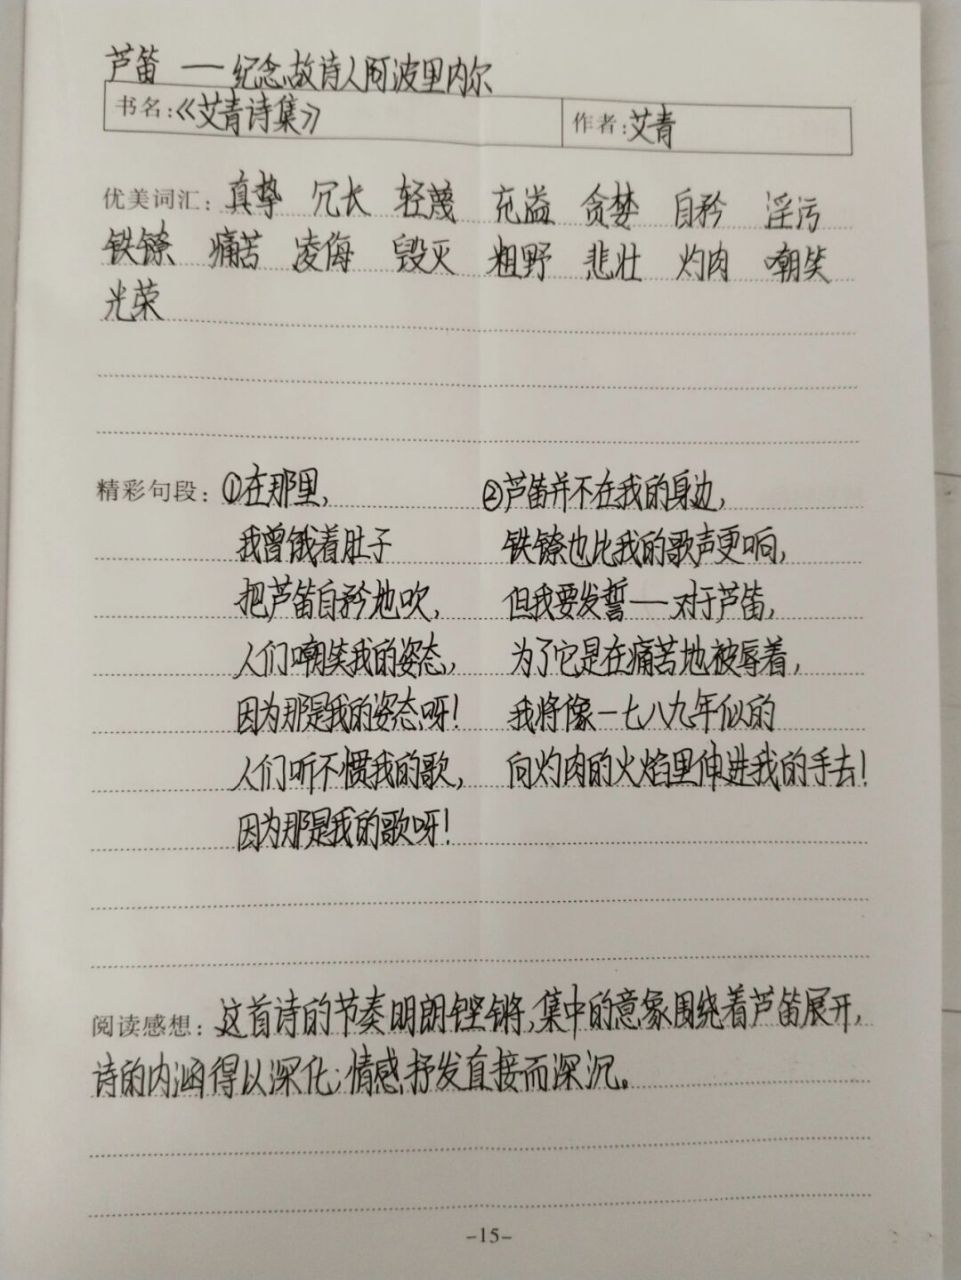 芦笛 —纪念故诗人阿波里内尔
书名:《艾青诗集》 作者:艾青
优美词汇: 真挚 冗长 轻蔑 充溢 贪婪 自矜 淫污
铁镣 痛苦 凌侮 毁灭 粗野 悲壮 灼肉 嘲笑
光荣
精彩句段: ①在那里,
我曾饿着肚子
把芦笛自矜地吹,
人们嘲笑我的姿态,
因为那是我的姿态呀!
人们听不惯我的歌,
因为那是我的歌呀!
②芦笛并不在我的身边,
铁镣也比我的歌声更响,
但我要发誓——对于芦笛,
为了它是在痛苦地被辱着,
我将像一七八九年似的
向灼肉的火焰里伸进我的手去!
阅读感想: 这首诗的节奏明朗铿锵,集中的意象围绕着芦笛展开,
诗的内涵得以深化;情感抒发直接而深沉。
-15-